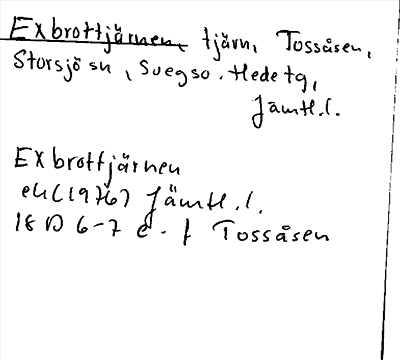 Exbrottjärnen, tjärn, Tossåsen,
Storsjö sn, Svegs o. Hede tg,
Jämtl. l.
Exbrottjärnen
ek (1976) Jämtl. l.
18 D 6-7 e - f Tossåsen